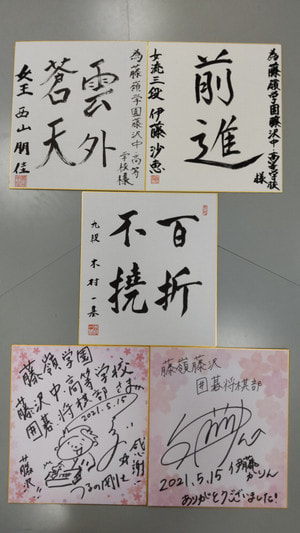 為藤嶺学園藤沢中高等
学校様
雲外
蒼天
女王 西山朋佳
為藤嶺学園藤沢中・高等学校
様
前進
女流三段 伊藤沙恵
百折
不撓
九段 木村一基
藤嶺学園
藤沢中高等学校
囲碁将棋部さま
2021.5.15
感謝!
藤沢!!
つるの剛士
藤嶺藤沢
囲碁将棋部
2021.5.15 伊藤かりん
ありがとうございました!